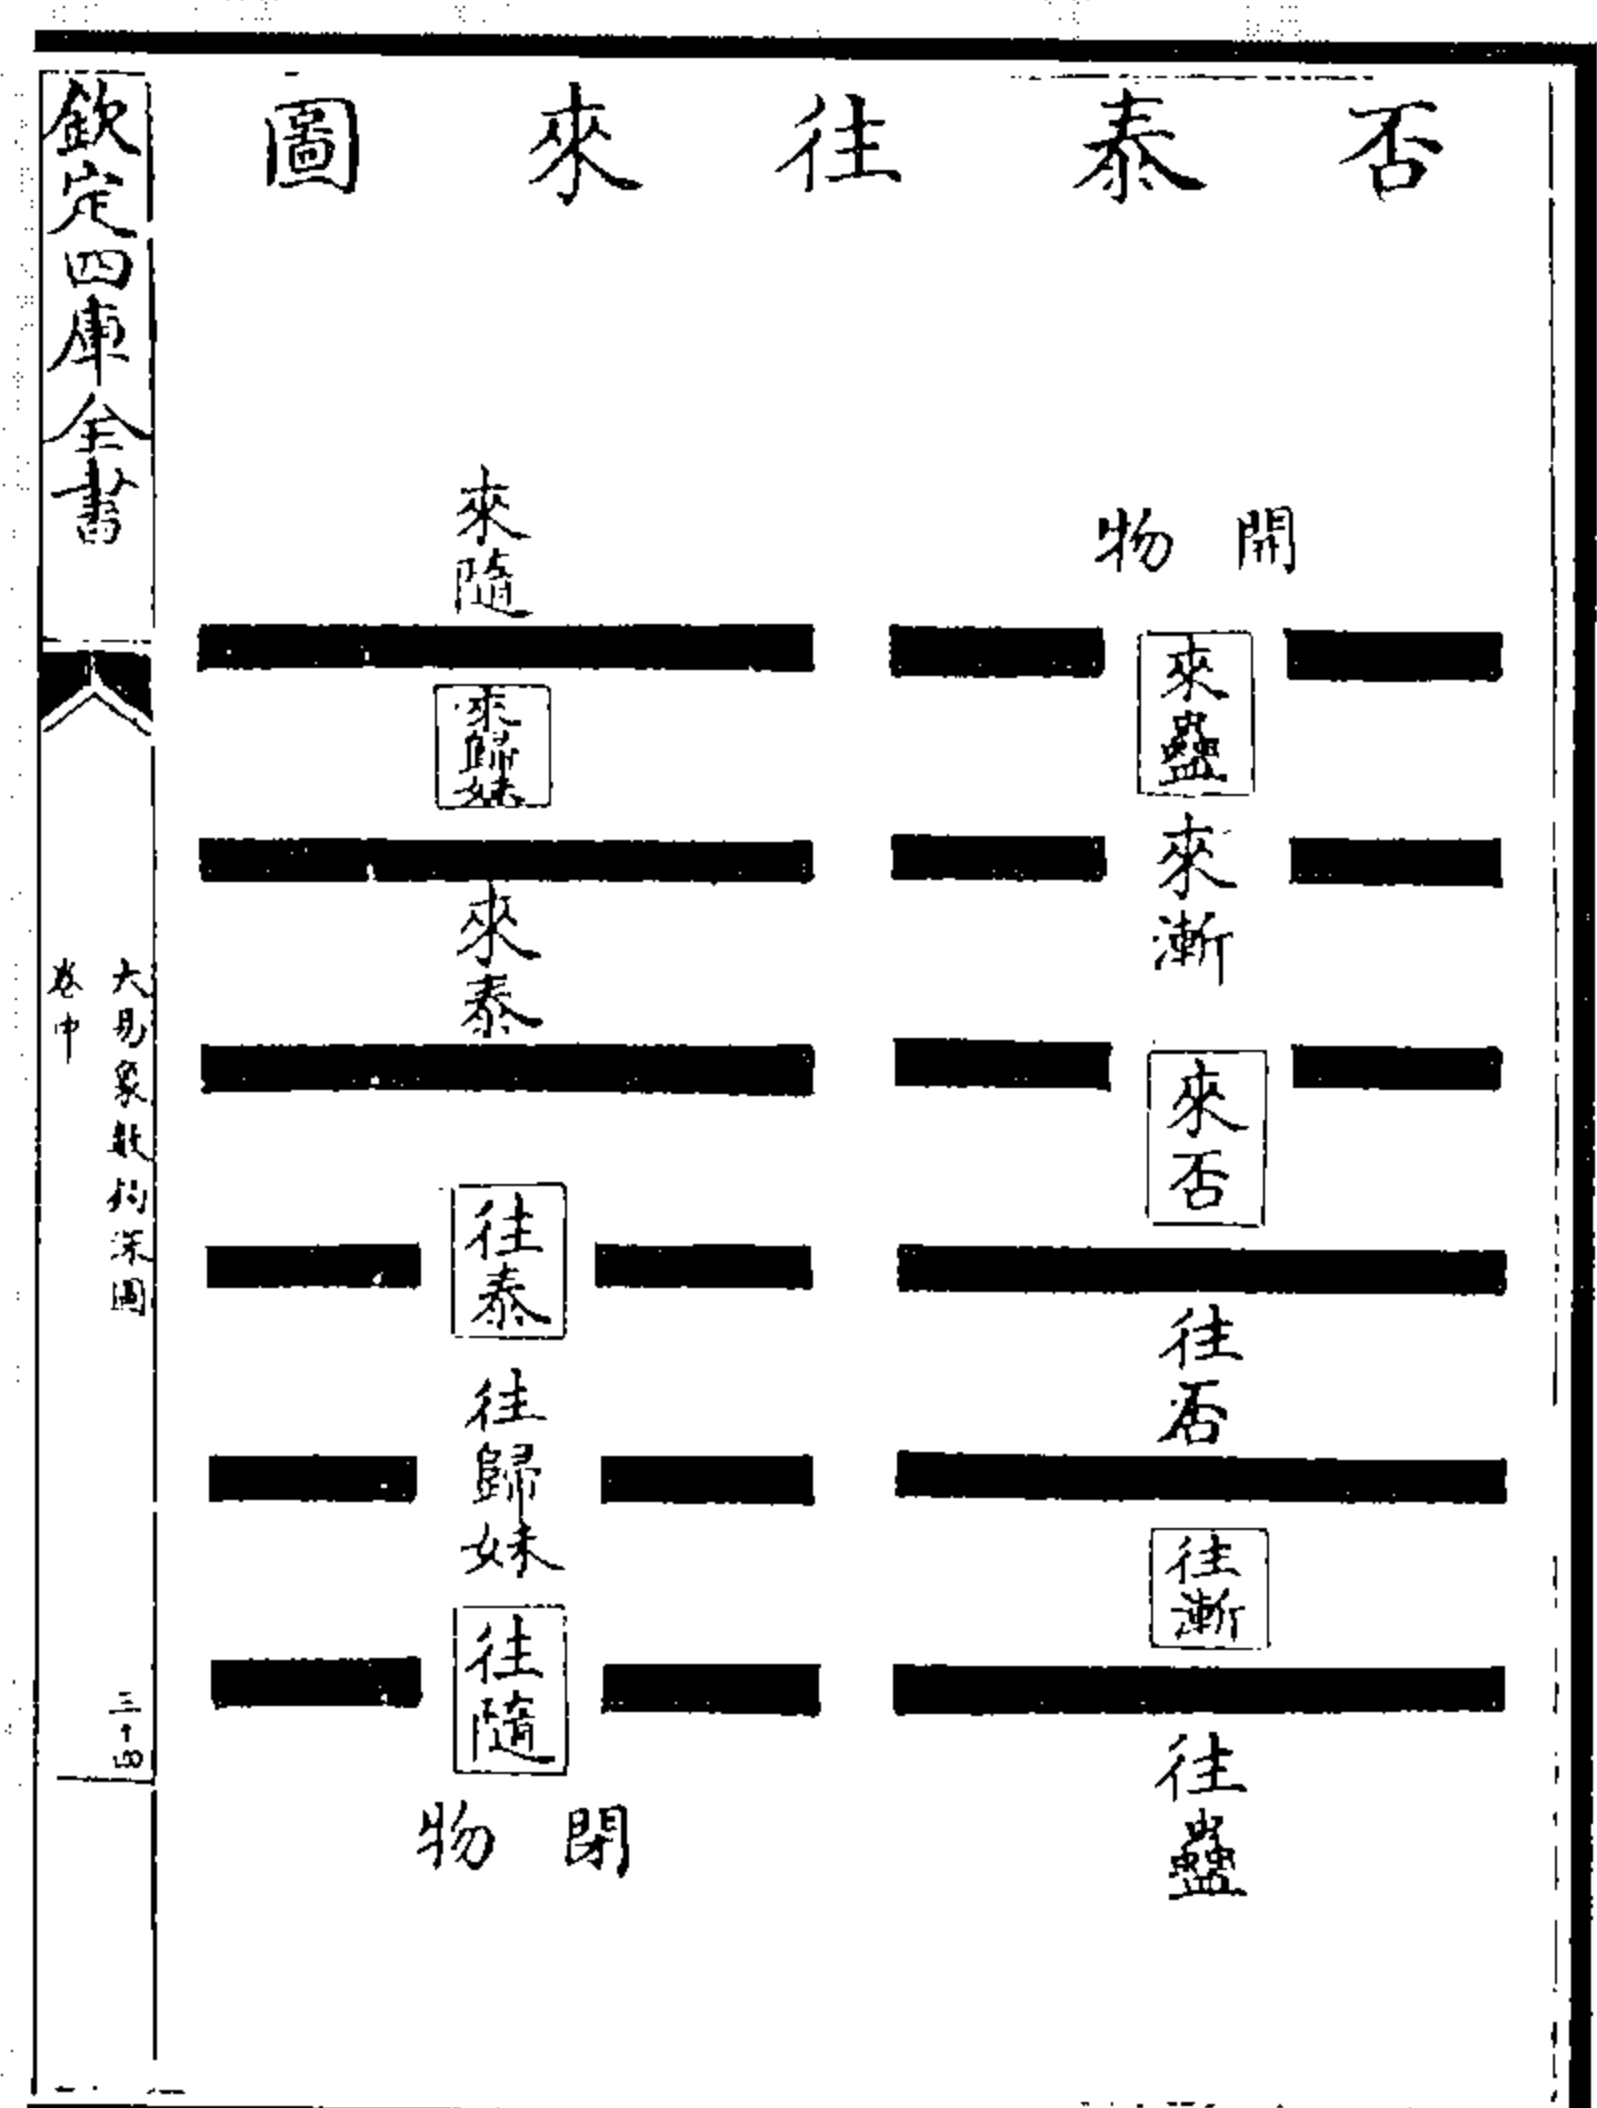 否泰往來圖
開物
來蠱
來漸
來否
往否
往漸
往蠱
來隨
來歸妹
來泰
往泰
往歸妹
往隨
閉物
欽定四庫全書
大易象數鈎深圖
卷中
三十